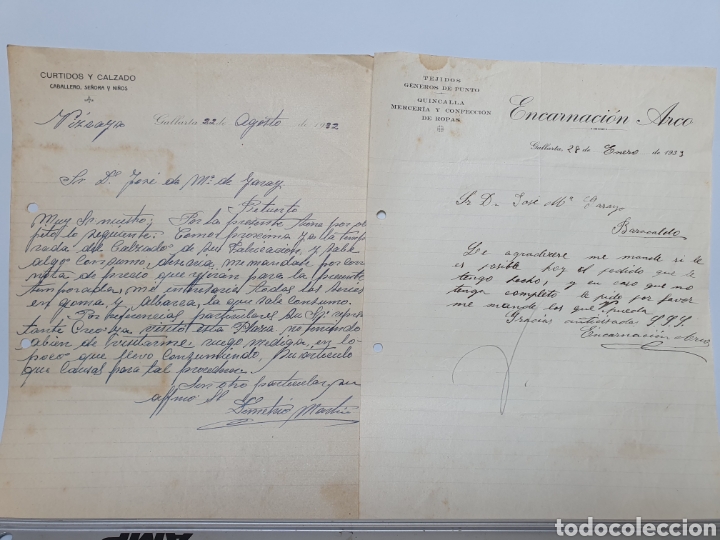 CURTIDOS Y CALZADO
CABALLERO, SEÑORA Y NIÑOS
Vizcaya Gallarta 22 de Agosto de 1932
Sr. D. José de Mª. de Garay
Retuerto
Muy Sr nuestro: Por la presente tiene por ob
jeto lo seguiente: Como próxima ya la tempo
rada del Calzado de su fabricacion, y sabe
algo Consumo, desearia, me mandase por con
nota de precio que regirán para la presente
temporada, me interesaria todas las series
en goma, y albarca, la que sale Consumo.
Por referencias particulares su Sr. repre
tante Creo ha visitado esta Plaza no habiendo
abien de visitarme, ruego me diga, en lo
poco que llevo Consumiendo, Su articulo
que Causas para tal proceder.
Sin otro particular su
affmo SS
Martin
TEJIDOS
GÉNEROS DE PUNTO
QUINCALLA
MERCERÍA Y CONFECCIÓN
DE ROPAS
Encarnación Arco
Gallarta 28 de Enero de 1933
Sr D. Jose Mª Garay
Baracaldo
Le agradecere me mande si le
es posible hoy el pedido que le
tengo hecho, y en caso que no
tenga completo le pido por favor
me mande los que pueda
Gracias anticipadas S.S.S.
Encarnación Arco
todocoleccion